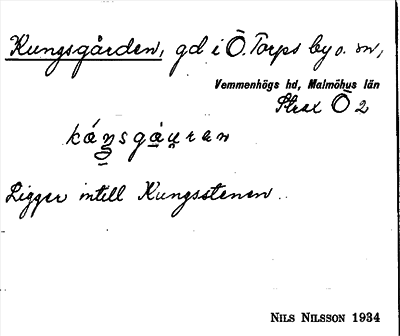 Kungsgården, gd i Ö. Torps by o. sn,
Vemmenhögs hd, Malmöhus län
Strax Ö 2
Ligger intill Kungsstenen.
NILS NILSSON 1934